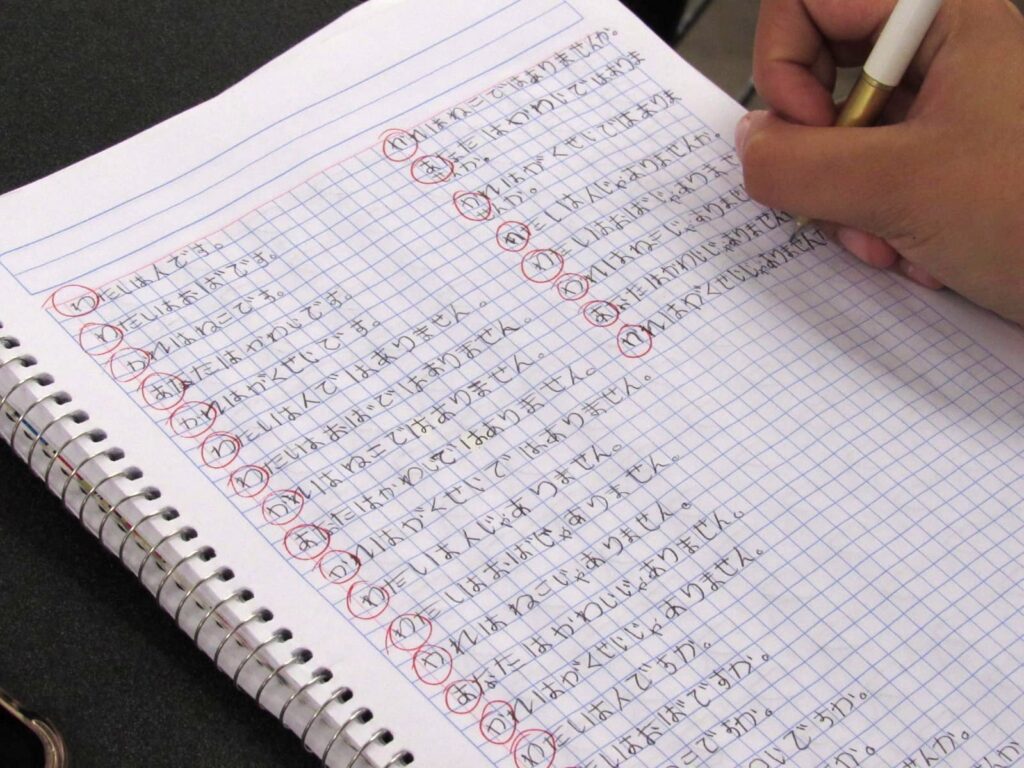 わたしは人です。
わたしはおばです。
かれはねこです。
あなたはかわいです。
かれはがくせいです。
わたしは人ではありません。
わたしはおばではありません。
かれはねこではありません。
あなたはかわいではありません。
かれはがくせいではありません。
わたしは人じゃありません。
わたしはおばじゃありません。
かれはねこじゃありません。
あなたはかわいじゃありません。
かれはがくせいじゃありません。
わたしは人ですか。
しはおばですか。
こですか。
いですか。
せんか。
かれはねこではありませんか。
あなたはかわいではありま
せんか。
かれはがくせいではありま
せんか。
わたしは人じゃありませんか。
わたしはおばじゃありませ
かれはねこじゃありませ
あなたはかわいじゃありません
かれはがくせいじゃありません